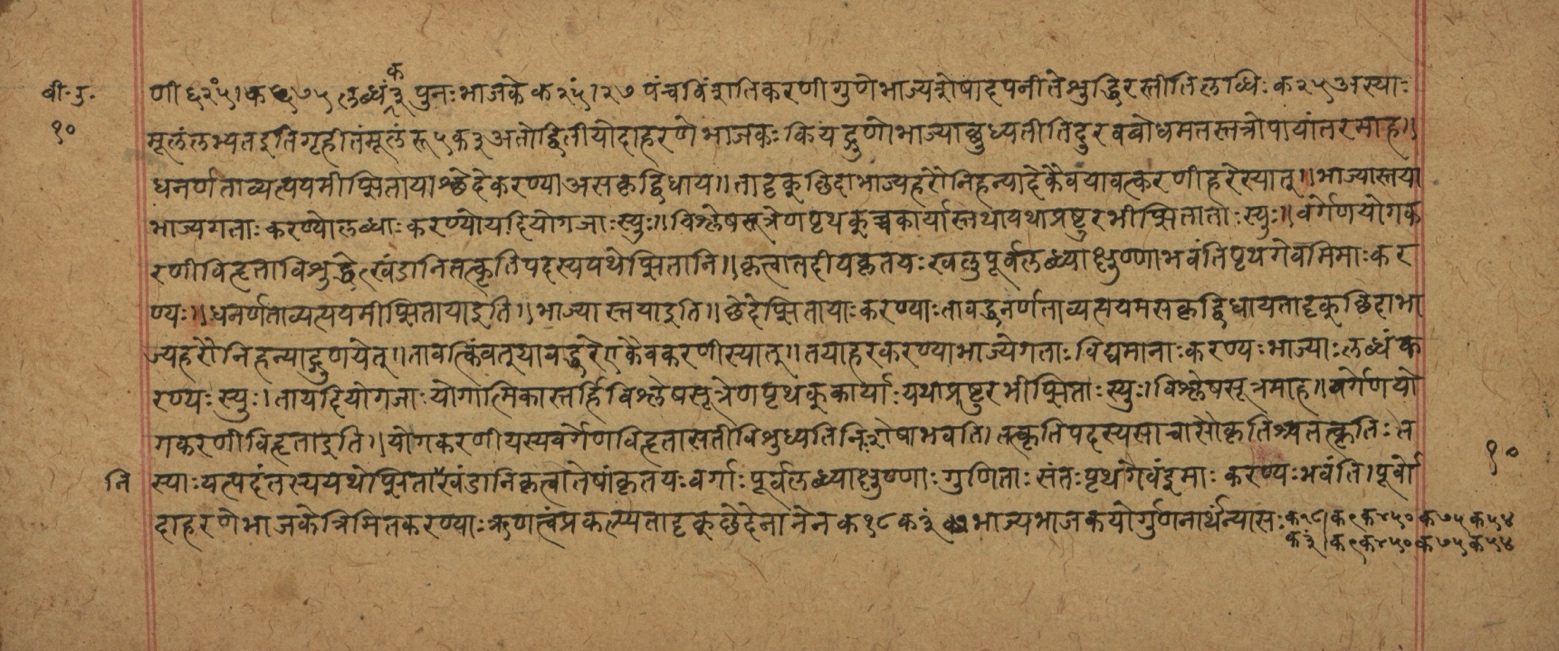 बी॰ग॰
१०
णी ६२५ं। क ६७५ लब्धं क ३ पुनः भाजके क २५ं। २७ पंचविंशतिकरणी गुणे भाज्यशेषादपनीते शुद्धिरस्तीति लब्धिः क २५ अस्याः
मूलं लभ्यत इति गृहीतं मूलं रू ५ क ३ अतो द्वितीयोदाहरणे भाजकः कियद्गुणो भाज्याच्छुध्यतीति दुरवबोधमतस्तत्रोपायांतरमाह॥
धनर्णताव्यत्ययमीप्सितायाश्छेदे करण्या असकृद्विधाय॥ तादृक्छिदा भाज्यहरौ निहन्यादेकैव यावत्करणी हरे स्यात्॥ भाज्यास्तया
भाज्यगताः करण्यो लब्धाः करण्यो यदि योगजाः स्युः॥ विश्लेषसूत्रेण पृथक् च कार्यास्तथा यथा प्रष्टुरभीप्सिताताः स्युः॥ वर्गेण योगक
रणी विहृता विशुद्धेत्खंडानि तत्कृतिपदस्य यथेप्सितानि॥ कृत्वा तदीयकृतयः खलु पूर्वलब्ध्या क्षुण्णा भवंति पृथगेवमिमाः कर
ण्यः॥ धनर्णताव्यत्ययमीप्सिताया इति॥ भाज्यास्तया इति॥ छेदेप्सितायाः करण्याः तावद्धनर्णताव्यत्ययमसकृद्विधाय तादृक्छिदा भा
ज्यहरौ निहन्याद्गुणयेत्॥ तावत्किंवत् यावद्धरे एकैव करणी स्यात्॥ तया हरकरण्या भाज्ये गताः विद्यमानाः करण्यः भाज्याः लब्धं क
रण्यः स्युः। ता यदि योगजाः योगात्मिकास्तर्हि विश्लेषसूत्रेण पृथक् कार्याः यथा प्रष्टुरभीप्सिताः स्युः। विश्लेषसूत्रमाह॥ वर्गेण यो
गकरणी विहृता इति॥ योगकरणी यस्य वर्गेण विहृता सती विशुध्यति निःशेषा भवति। तत्कृतिपदस्य सा चासौ कृतिश्च तत्कृतिः त
नि
स्याः यत्पदं तस्य यथेप्सिता खंडानि कृत्वा तेषां कृतयः वर्गाः पूर्वलब्ध्या क्षुण्णाः गुणिताः संतः पृथगेवं इमाः करण्यः भवंति। पूर्वो
१०
दाहरणे भाजके त्रिमितकरण्याः ऋणत्वं प्रकल्प्य तादृक्छेदेनानेन क १८ क ३ं भाज्यभाजकयोर्गुणनार्थं न्यासः क १८। क ९ क ४५० क ७५ क ५४
क ३ं। क ९ क ४५० क ७५ क ५४